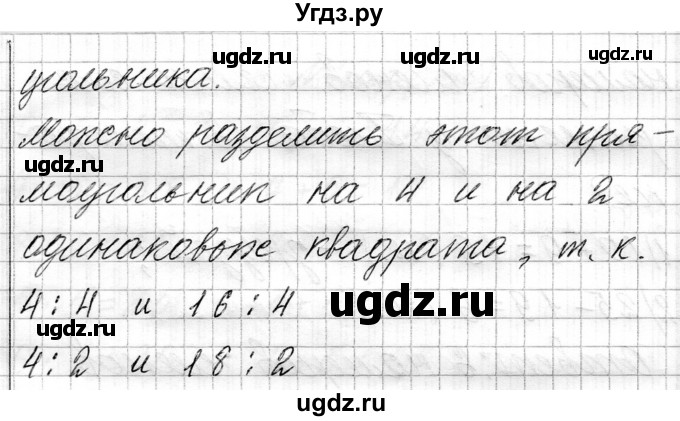 Угдз.ру
ugdz.ru ugdz.ru ugdz.ru
угольника.
Можно разделить этот пря-
ugdz.ru
моугольник на 4 и на 2
одинаковые квадрата, т. к.
4:4 и 16:4 ugdz.ru
ugdz.ru
4:2 и 18:2
ugdz.ru